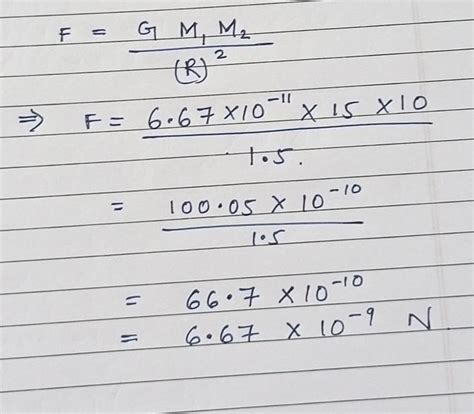 F = G M₁ M₂ / (R)²
⇒ F = 6.67 × 10⁻¹¹ × 15 × 10 / 1.5.
= 100.05 × 10⁻¹⁰ / 1.5
= 66.7 × 10⁻¹⁰
= 6.67 × 10⁻⁹ N